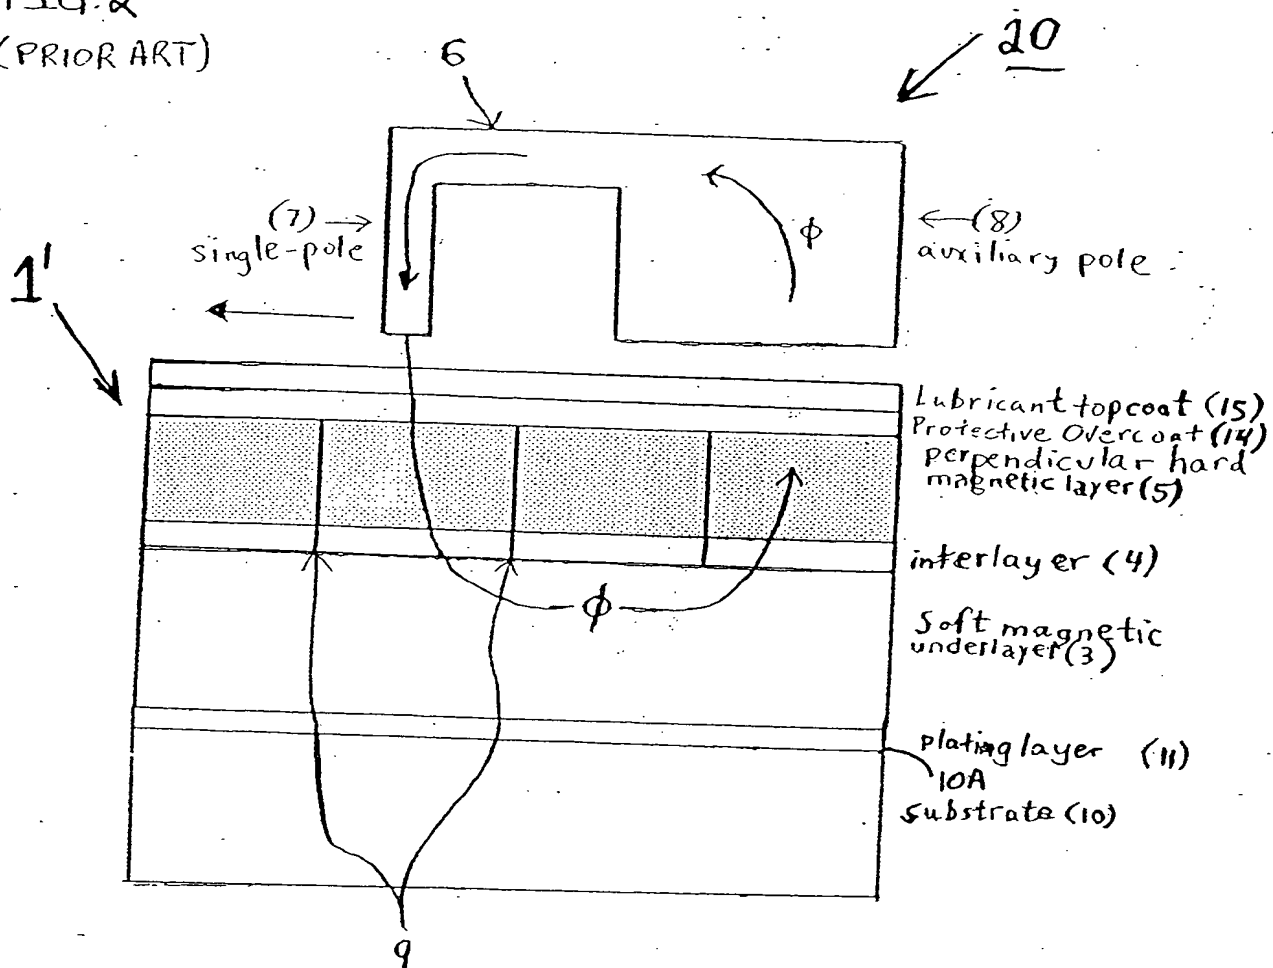 FIG. 2
(PRIOR ART)
20
6
(7)
single-pole
(8)
auxiliary pole
ϕ
1'
Lubricant topcoat (15)
Protective Overcoat (14)
perpendicular hard
magnetic layer (5)
interlayer (4)
ϕ
Soft magnetic
underlayer (3)
plating layer (11)
10A
substrate (10)
9